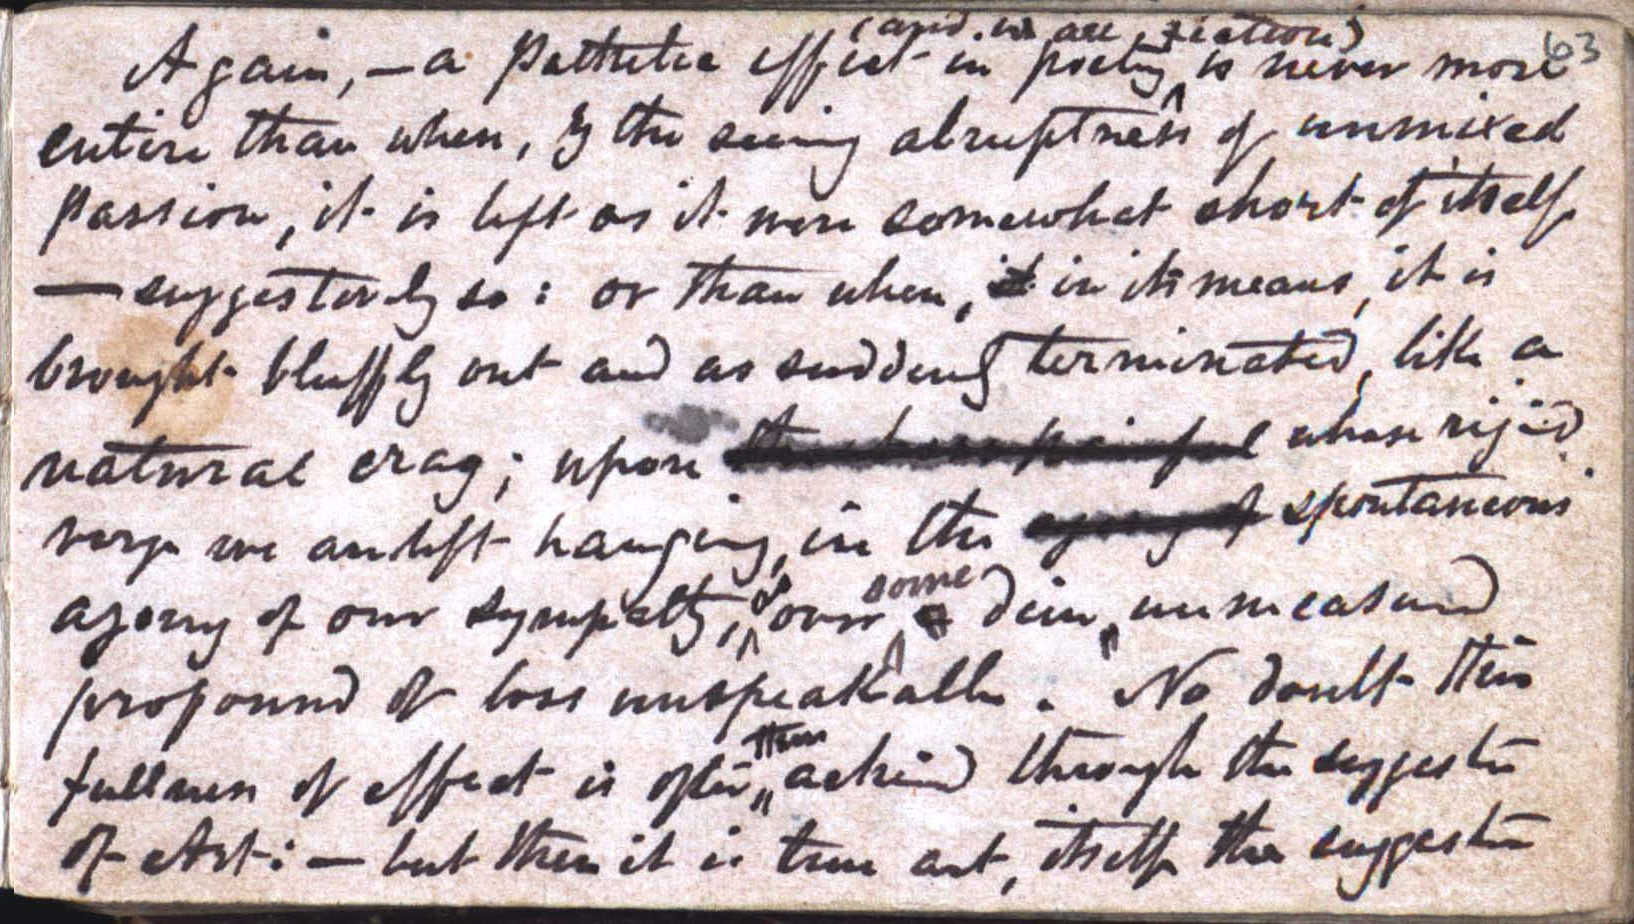 (and in all fiction)
63
Again, — a pathetic effect in poetry is never more
entire than when, by the seeming abruptness of unmixed
passion, it is left as it were somewhat short of itself
— suggestively so: or than when, in its means, it is
brought bluffly out and as suddenly terminated, like a
natural crag; upon whose rigid
verge we are left hanging, in the spontaneous
agony of our sympathy, & over some dim, unmeasured
profound of loss unspeakable. No doubt this
fullness of effect is often thus achieved through the suggestion
of Art: — but then it is true art, itself the suggestion